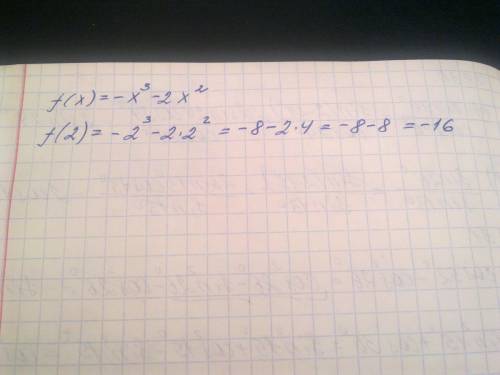 f(x) = -x³ - 2x²
f(2) = -2³ - 2·2² = -8 - 2·4 = -8 - 8 = -16